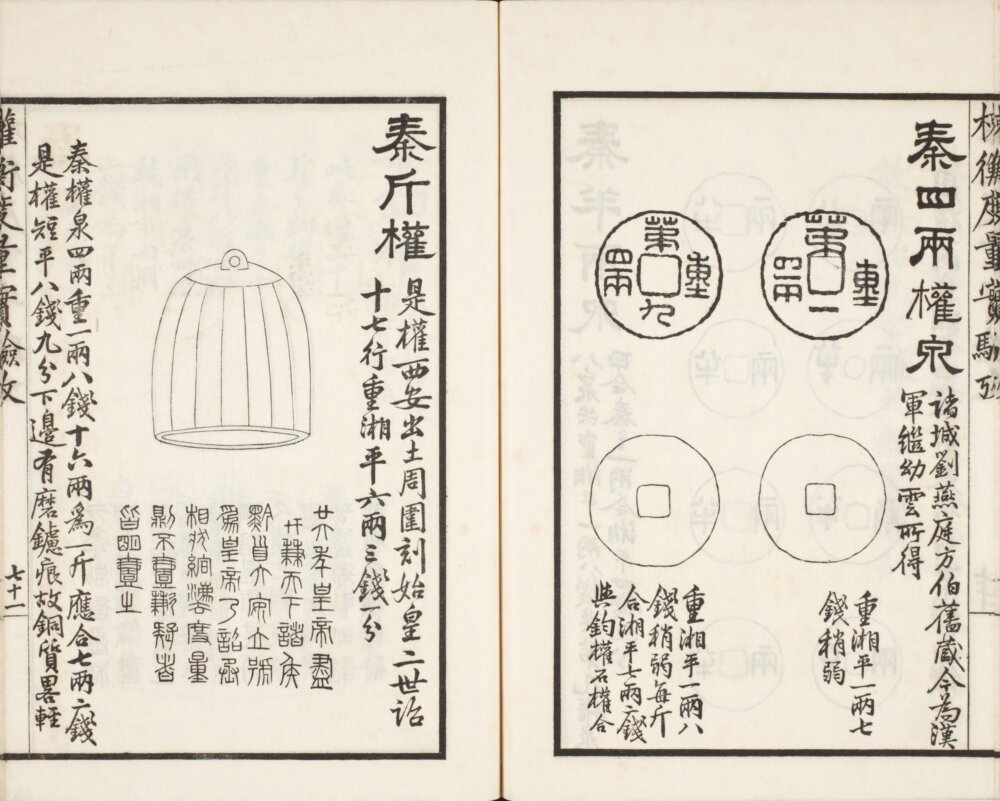 權衡度量實驗攷
秦四兩權泉
諸城劉燕庭方伯舊藏今為漢
軍繼幼雲所得
第一
重四兩
重湘平一兩七
錢稍弱
第九
重四兩
重湘平一兩八
錢稍弱每斤
合湘平七兩二錢
與鈞權石權合
秦斤權
是權西安出土周圍刻始皇二世詔
十七行重湘平六兩三錢一分
廿六年皇帝盡
并兼天下諸矦
黔首大安立號
爲皇帝乃詔丞
相狀綰灋度量
則不壹歉疑者
皆明壹之
秦權泉四兩重一兩八錢十六兩爲一斤應合七兩二錢
是權短平八錢九分下邊有磨鑢痕故銅質畧輕
權衡度量實驗攷
七十一